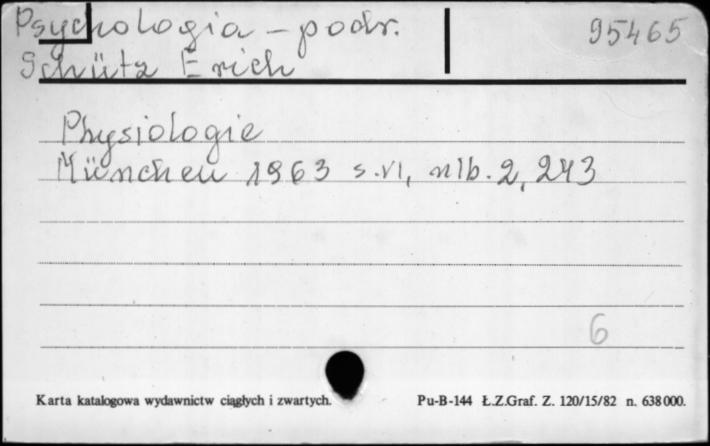 Psychologia - podr. 95465
Schütz Erich
Physiologie
München 1963 s. VI, nlb. 2, 243
6
Karta katalogowa wydawnictw ciągłych i zwartych. Pu-B-144 Ł.Z.Graf. Z. 120/15/82 n. 638 000.